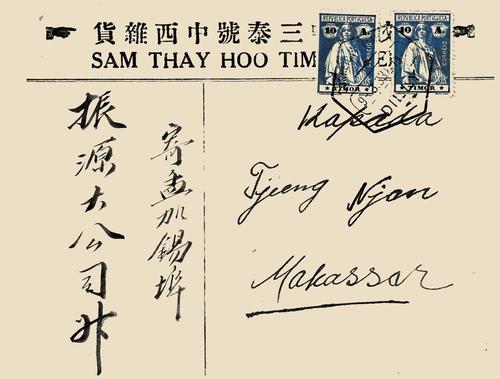 貨雜西中號泰三
SAM THAY HOO TIM
REPUBLICA PORTUGUESA
10 A.
CORREIO
TIMOR
REPUBLICA PORTUGUESA
10 A.
CORREIO
TIMOR
DILLY
Kapada
Tjieng Njan
Makassar
寄孟加錫埠
振源大公司